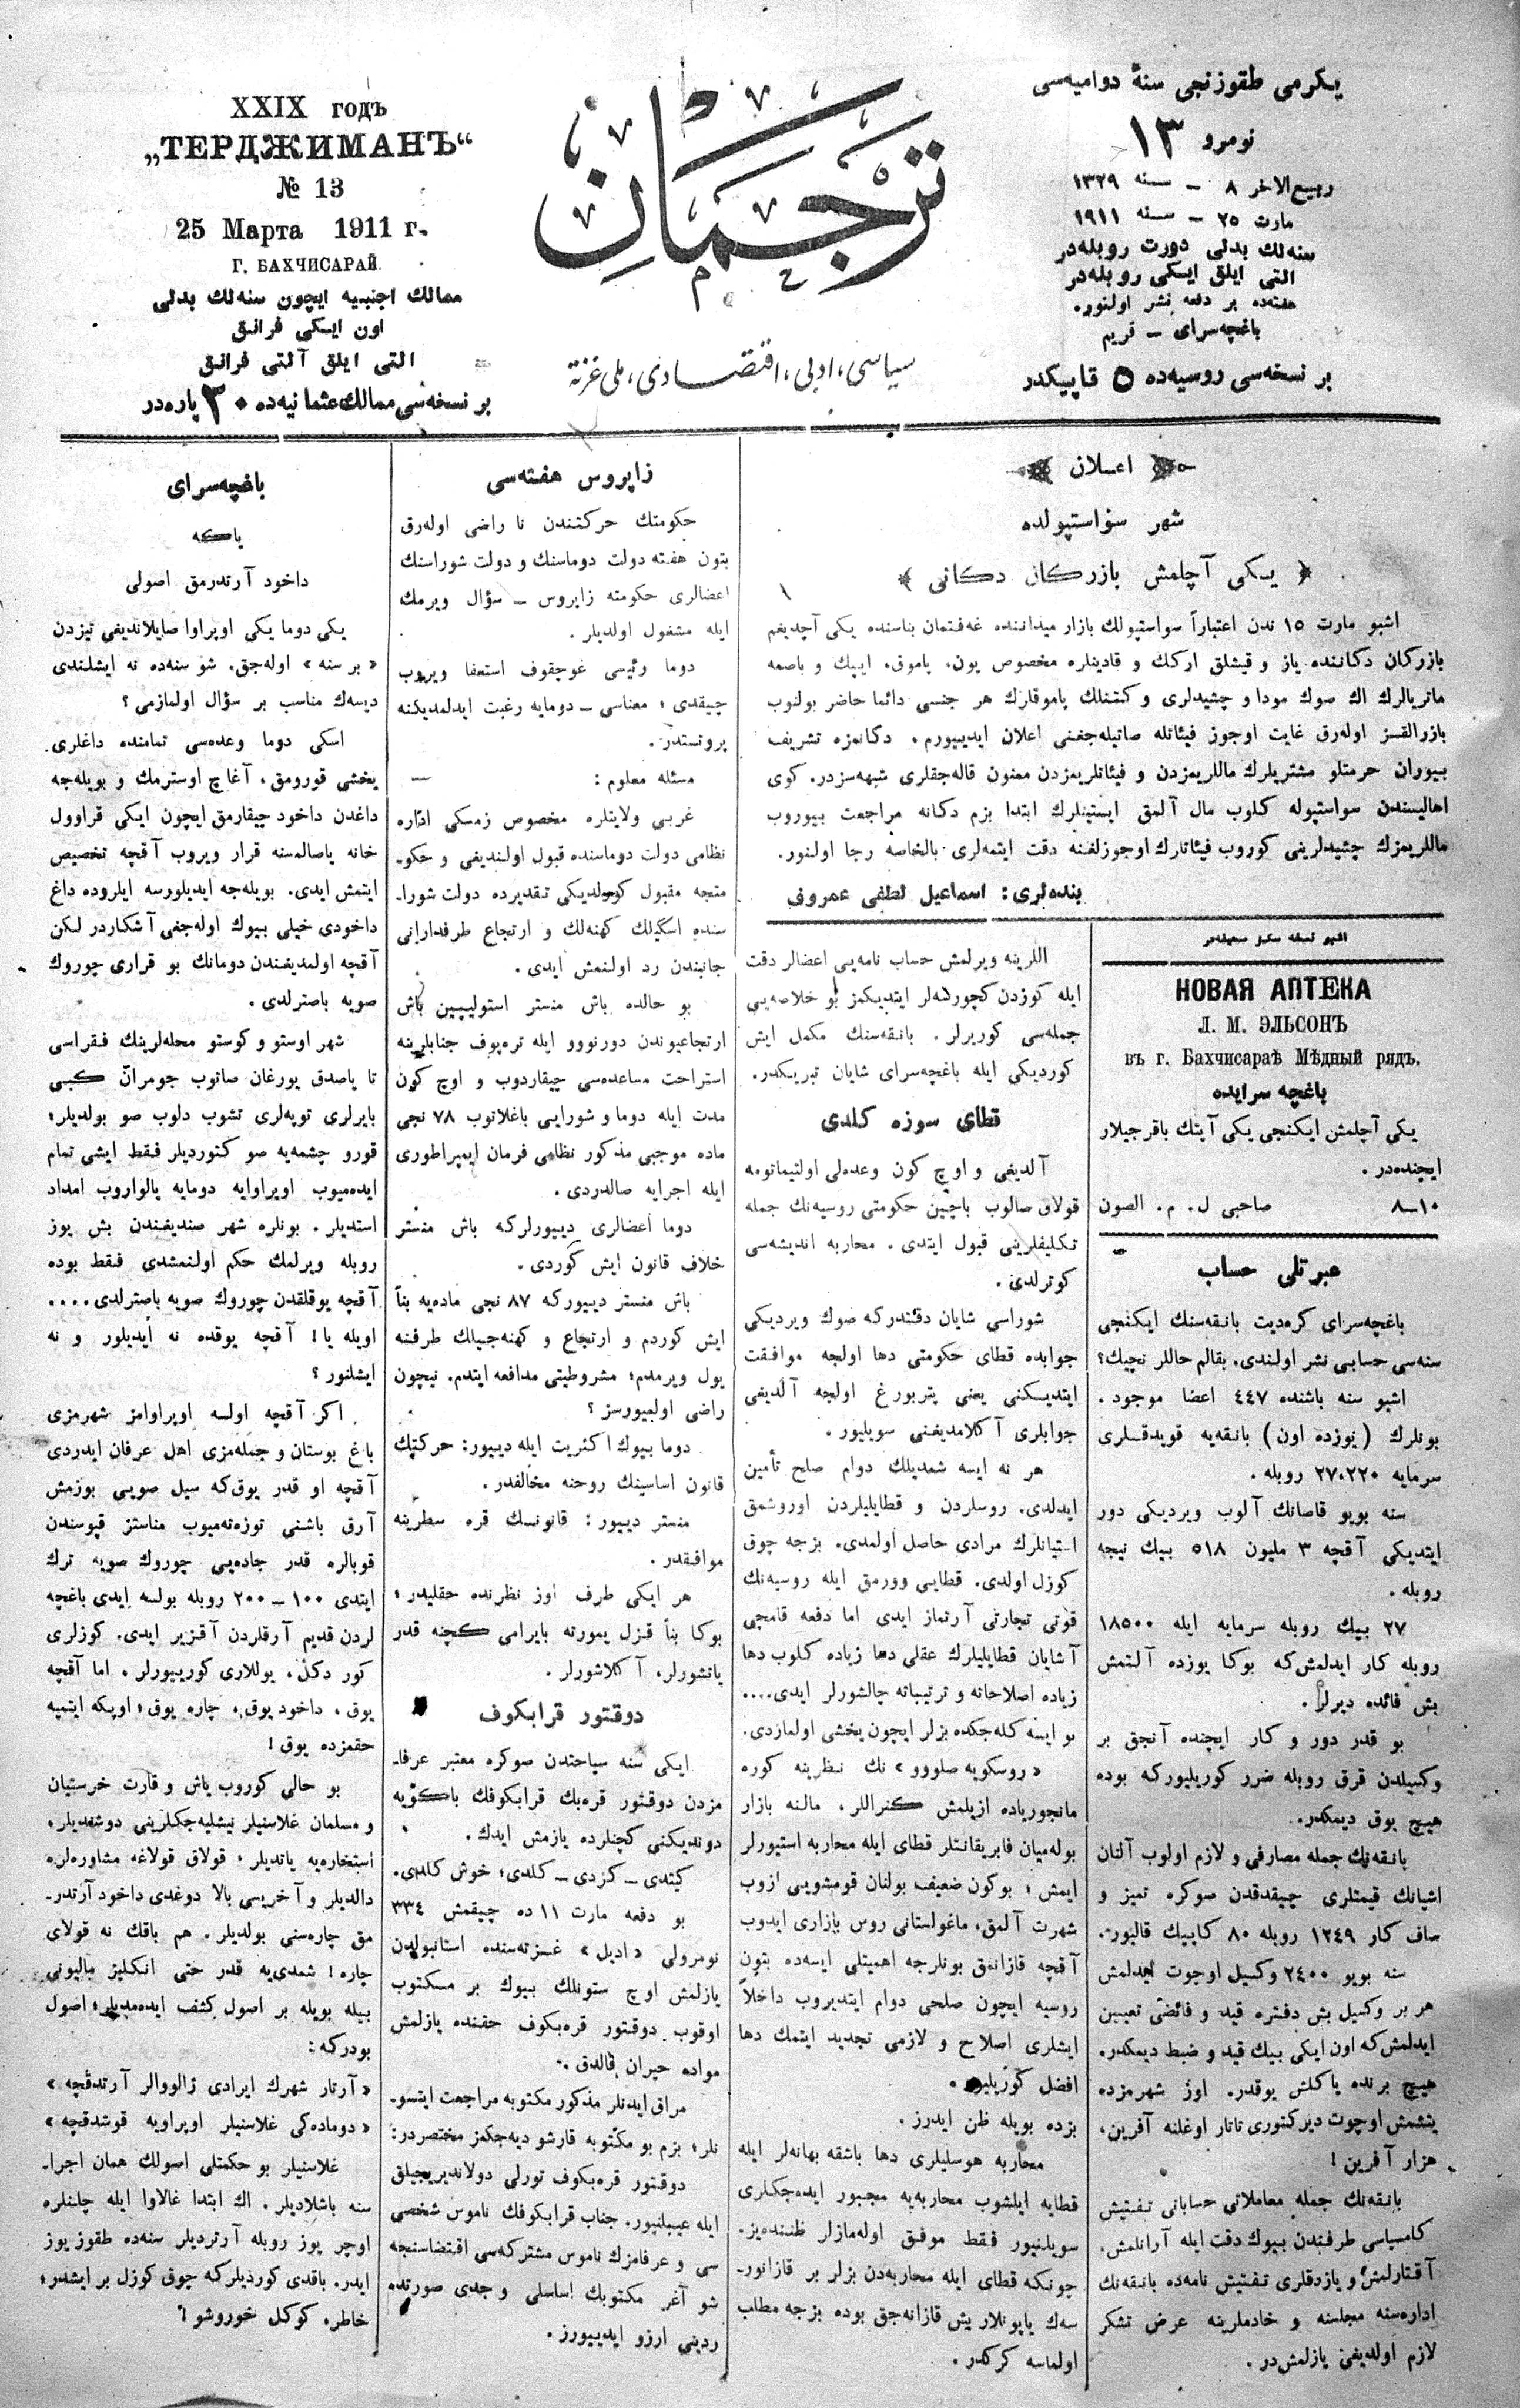 يكرمى طقوزنجى سنهٔ دواميه‌سى
نومرو ۱۳
ربيع الاخر ۸ – سنه ۱۳۲۹
مارت ۲۵ – سنه ۱۹۱۱
سنه‌لك بدلى دورت روبله‌در
التى ايلق ايكى روبله‌در
هفته‌ده بر دفعه نشر اولنور.
باغچه‌سراى – قريم
بر نسخه‌سى روسيه‌ده ۵ قاپيكدر
ترجمان
سياسى، ادبى، اقتصادى، ملى غزته
XXIX годъ
„ТЕРДЖИМАНЪ“
№ 13
25 Марта 1911 г.
Г. БАХЧИСАРАЙ.
ممالك اجنبيه ايچون سنه‌لك بدلى
اون ايكى فرانق
التى ايلق آلتى فرانق
بر نسخه‌سى ممالك عثمانيه‌ده ۳۰ پاره‌در
اعلان
شهر سواستپولده
﴿ يكى آچلمش بازركان دكانى ﴾
اشبو مارت ۱۵ ندن اعتباراً سواستپولك بازار ميداننده غه‌فتمان بناسنده يكى آچديغم
بازركان دكاننده ياز و قيشلق اركك و قادينلره مخصوص يون، پاموق، ايپك و باصمه
ماتريالرك اك صوك مودا و چشيدلرى و كتنلك پاموقلرك هر جنسى دائما حاضر بولنوب
بازرالقسز اوله‌رق غايت اوجوز فيئاتله صاتيله‌جغنى اعلان ايدييورم. دكانمزه تشريف
بيوران حرمتلو مشتريلرك ماللريمزدن و فيئاتلريمزدن ممنون قاله‌جقلرى شبهه‌سزدر. كوى
اهاليسندن سواستپوله كلوب مال آلمق ايستينلرك ابتدا بزم دكانه مراجعت بيوروب
ماللريمزك چشيدلرينى كوروب فيئاتلرك اوجوزلغنه دقت ايتمه‌لرى بالخاصه رجا اولنور.
بنده‌لرى: اسماعيل لطفى عمروف
اشبو نسخه سكز صحيفه‌در
НОВАЯ АПТЕКА
Л. М. ЭЛЬСОНЪ
въ г. Бахчисараѣ Мѣдный рядъ.
باغچه سرايده
يكى آچلمش ايكنجى يكى آپتك باقرجيلار
ايچنده‌در.
۱۰–۸ صاحبى ل. م. الصون
عبرتلى حساب
باغچه‌سراى كره‌ديت بانقه‌سنك ايكنجى
سنه‌سى حسابى نشر اولندى. بقالم حاللر نچيك؟
اشبو سنه باشنده ۴۴۷ اعضا موجود.
بونلرك (يوزده اون) بانقه‌يه قويدقلرى
سرمايه ۲۷،۲۲۰ روبله.
سنه بويو قاصانك آلوب ويرديكى دور
ايتديكى آقچه ۳ مليون ۵۱۸ بيك نيجه
روبله.
۲۷ بيك روبله سرمايه ايله ۱۸۵۰۰
روبله كار ايدلمش‌كه بوكا يوزده آلتمش
بش فائده ديرلر.
بو قدر دور و كار ايچنده آنجق بر
وكسيلدن قرق روبله ضرر كوريليوركه بوده
هيچ يوق ديمكدر.
بانقه‌نك جمله مصارفى و لازم اولوب آلنان
اشيانك قيمتلرى چيقدقدن صوكره تميز و
صاف كار ۱۲۴۹ روبله ۸۰ كاپيك قاليور.
سنه بويو ۲۴۰۰ وكسيل اوچوت ايدلمش
هر بر وكسيل بش دفتره قيد و فائضى تعيين
ايدلمش‌كه اون ايكى بيك قيد و ضبط ديمكدر.
هيچ برنده ياكلش يوقدر. اوز شهرمزده
يتشمش اوچوت ديركتورى تاتار اوغلنه آفرين،
هزار آفرين!
بانقه‌نك جمله معاملاتى حساباتى تفتيش
كامسياسى طرفندن بيوك دقت ايله آرانلمش.
آقتارلمش و يازدقلرى تفتيش نامه‌ده بانقه‌نك
اداره‌سنه مجلسنه و خادملرينه عرض تشكر
لازم اولديغى يازلمش‌در.
اللرينه ويرلمش حساب نامه‌يى اعضالر دقت
ايله كوزدن كچورسه‌لر ايتديكمز بو خلاصه‌يى
جمله‌سى كوريرلر. بانقه‌سنك مكمل ايش
كورديكى ايله باغچه‌سراى شايان تبريكدر.
قطاى سوزه كلدى
آلديغى و اوچ كون وعده‌لى اولتيماتومه
قولاق صالوب پاچين حكومتى روسيه‌نك جمله
تكليفلرينى قبول ايتدى. محاربه انديشه‌سى
كوترلدى.
شوراسى شايان دقتدركه صوك ويرديكى
جوابده قطاى حكومتى دها اولجه موافقت
ايتديكنى يعنى پتربورغ اولجه آلديغى
جوابلرى آكلامديغنى سويليور.
هر نه ايسه شمديلك دوام صلح تأمين
ايدلدى. روسلردن و قطايليلردن اوروشمق
استيانلرك مرادى حاصل اولمدى. بزجه چوق
كوزل اولدى. قطايى وورمق ايله روسيه‌نك
قوتى تجارتى آرتماز ايدى اما دفعه قامچى
آشايان قطايليلرك عقلى دها زياده كلوب دها
زياده اصلاحاته و ترتيباته چالشورلر ايدى....
بو ايسه كله‌جكده بزلر ايچون يخشى اولمازدى.
«روسكويه صلووو» نك نظرينه كوره
مانجورياده ازيلمش كنراللر، مالنه بازار
بوله‌ميان فابريقانتلر قطاى ايله محاربه استيورلر
ايمش؛ بوكون ضعيف بولنان قومشويى ازوب
شهرت آلمق، ماغولستانى روس بازارى ايدوب
آقچه قازانمق بونلرجه اهميتلى ايسه‌ده بتون
روسيه ايچون صلحى دوام ايتديروب داخلاً
ايشلرى اصلاح و لازمى تجديد ايتمك دها
افضل كوريليور.
بزده بويله ظن ايدرز.
محاربه هوسليلرى دها باشقه بهانه‌لر ايله
قطايه ايلشوب محاربه‌يه مجبور ايده‌جكلرى
سويلنيور فقط موفق اوله‌مازلر ظننده‌يز.
چونكه قطاى ايله محاربه‌دن بزلر بر قازانور-
سه‌ك ياپونلار يش قازانه‌جق بوده بزجه مطلب
اولماسه كركدر.
زاپروس هفته‌سى
حكومتك حركتندن نا راضى اوله‌رق
بتون هفته دولت دوماسنك و دولت شوراسنك
اعضالرى حكومته زاپروس – سؤال ويرمك
ايله مشغول اولديلر.
دوما رئيسى غوچقوف استعفا ويروب
چيقدى؛ معناسى – دومايه رغبت ايدلمديكنه
پروتستدر.
مسئله معلوم:
غربى ولايتلره مخصوص زمسكى اداره
نظامى دولت دوماسنده قبول اولنديغى و حكو-
متجه مقبول كورلديكى تقديرده دولت شورا-
سنده اسكيلك كهنه‌لك و ارتجاع طرفدارانى
جانبندن رد اولنمش ايدى.
بو حالده باش منستر استوليپين باش
ارتجاعيوندن دورنووو ايله تره‌پوف جنابلرينه
استراحت مساعده‌سى چيقاردوب و اوچ كون
مدت ايله دوما و شورايى باغلاتوب ۷۸ نجى
ماده موجبى مذكور نظامى فرمان ايمپراطورى
ايله اجرايه صالدردى.
دوما اعضالرى دييورلركه باش منستر
خلاف قانون ايش كوردى.
باش منستر دييوركه ۸۷ نجى ماده‌يه بناً
ايش كوردم و ارتجاع و كهنه‌جيلك طرفنه
يول ويرمدم؛ مشروطيتى مدافعه ايتدم. نيچون
راضى اولميورسز؟
دوما بيوك اكثريت ايله دييور: حركتك
قانون اساسينك روحنه مخالفدر.
منستر دييور: قانونك قره سطرينه
موافقدر.
هر ايكى طرف اوز نظرنده حقليدر؛
بوكا بناً قزل يمورته بايرامى كچنه قدر
ياتشورلر، آكلاشورلر.
دوقتور قرابكوف
ايكى سنه سياحتدن صوكره معتبر عرفا-
مزدن دوقتور قره‌بك قرابكوفك باكويه
دونديكنى كچنلرده يازمش ايدك.
كيتدى – كزدى – كلدى؛ خوش كلدى.
بو دفعه مارت ۱۱ ده چيقمش ۳۳۴
نومرولى «اديل» غزته‌سنده استانبولدن
يازلمش اوچ ستونلك بيوك بر مكتوب
اوقوب دوقتور قره‌بكوف حقنده يازلمش
مواده حيران قالدق.
مراق ايدنلر مذكور مكتوبه مراجعت ايتسو-
نلر؛ بزم بو مكتوبه قارشو ديه‌جكمز مختصردر:
دوقتور قره‌بكوف تورلى دولانديريجيلق
ايله عيبلنيور. جناب قرابكوفك ناموس شخصى
سى و عرفامزك ناموس مشتركه‌سى اقتضاسنجه
شو آغر مكتوبك اساسلى و جدى صورتده
ردينى ارزو ايدييورز.
باغچه‌سراى
ياكه
داخود آرتدرمق اصولى
يكى دوما يكى اوپراوا صايلانديغى تيزدن
«بر سنه» اوله‌جق. شو سنه‌ده نه ايشلندى
ديسه‌ك مناسب بر سؤال اولمازمى؟
اسكى دوما وعده‌سى تمامنده داغلرى
يخشى قورومق، آغاچ اوسترمك و بويله‌جه
داغدن داخود چيقارمق ايچون ايكى قراوول
خانه ياصالمه‌سنه قرار ويروب آقچه تخصيص
ايتمش ايدى. بويله‌جه ايديلورسه ايلروده داغ
داخودى خيلى بيوك اوله‌جغى آشكاردر لكن
آقچه اولمديغندن دومانك بو قرارى چوروك
صويه باصترلدى.
شهر اوستو و كوستو محله‌لرينك فقراسى
تا ياصدق يورغان صاتوب جومران كبى
بايرلرى توپه‌لرى تشوب دلوب صو بولديلر؛
قورو چشمه‌يه صو كتورديلر فقط ايشى تمام
ايده‌ميوب اوپراوايه دومايه يالواروب امداد
استديلر. بونلره شهر صنديغندن بش يوز
روبله ويرلمك حكم اولنمشدى فقط بوده
آقچه يوقلقدن چوروك صويه باصترلدى....
اويله يا! آقچه يوقده نه ايديلور و نه
ايشلنور؟
اكر آقچه اولسه اوپراوامز شهرمزى
باغ بوستان و جمله‌مزى اهل عرفان ايدردى
آقچه او قدر يوق‌كه سيل صويى بوزمش
آرق باشنى توزه‌ته‌ميوب مناستر قپوسندن
قوبالره قدر جاده‌يى چوروك صويه ترك
ايتدى ۱۰۰ – ۲۰۰ روبله بولسه ايدى باغچه
لردن قديم آرقلردن آقزير ايدى. كوزلرى
كور دكل، يوللارى كورييورلر. اما آقچه
يوق، داخود يوق، چاره يوق؛ اوپكه ايتميه
حقمزده يوق!
بو حالى كوروب ياش و قارت خرستيان
و مسلمان غلاسنيلر نيشليه‌جكلرينى دوشنديلر،
استخاره‌يه ياتديلر، قولاق قولاغه مشاوره‌لره
دالديلر و آخريسى بالا دوغدى داخود آرتدر-
مق چاره‌سنى بولديلر. هم باقك نه قولاى
چاره! شمدى‌يه قدر حتى انكليز ماليونى
بيله بويله بر اصول كشف ايده‌مديلر؛ اصول
بودركه:
«آرتار شهرك ايرادى ژالووالر آرتدقچه»
«دوماده‌كى غلاسنيلر اوپراويه قوشدقچه»
غلاسنيلر بو حكمتلى اصولك همان اجرا-
سنه باشلاديلر. اك ابتدا غالاوا ايله چلنلره
اوچر يوز روبله آرترديلر سنه‌ده طقوز يوز
ايدر. باقدى كورديلركه چوق كوزل بر ايشدر؛
خاطر، كوكل خوروشو!